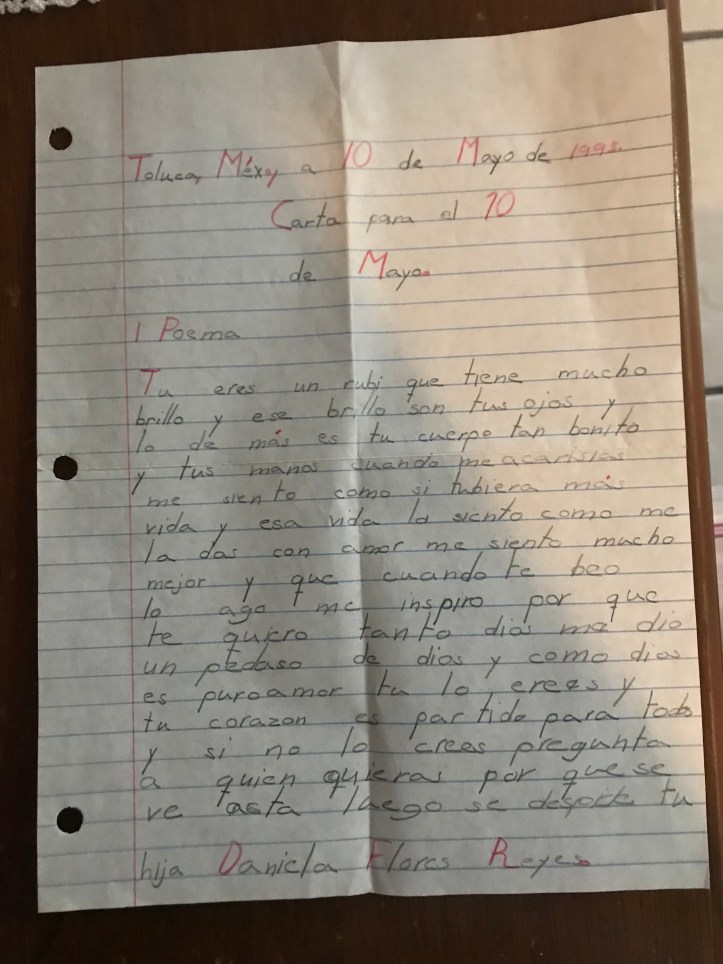 Toluca, Méx, a 10 de Mayo de
Carta para el 10
de Mayo.
1 Poema
Tu eres un rubi que tiene mucho
brillo y ese brillo son tus ojos y
lo de más es tu cuerpo tan bonito
y tus manos cuando me acarisias
me siento como si tubiera más
vida y esa vida la siento como me
la das con amor me siento mucho
mejor y que cuando te beo
lo ago me inspiro por que
te quiero tanto dios me dio
un pedaso de dios y como dios
es puroamor tu lo erees y
tu corazon es partido para todos
y si no lo crees pregunta
a quien quieras por que se
ve asta luego se despide tu
hija Daniela Flores Reyes.